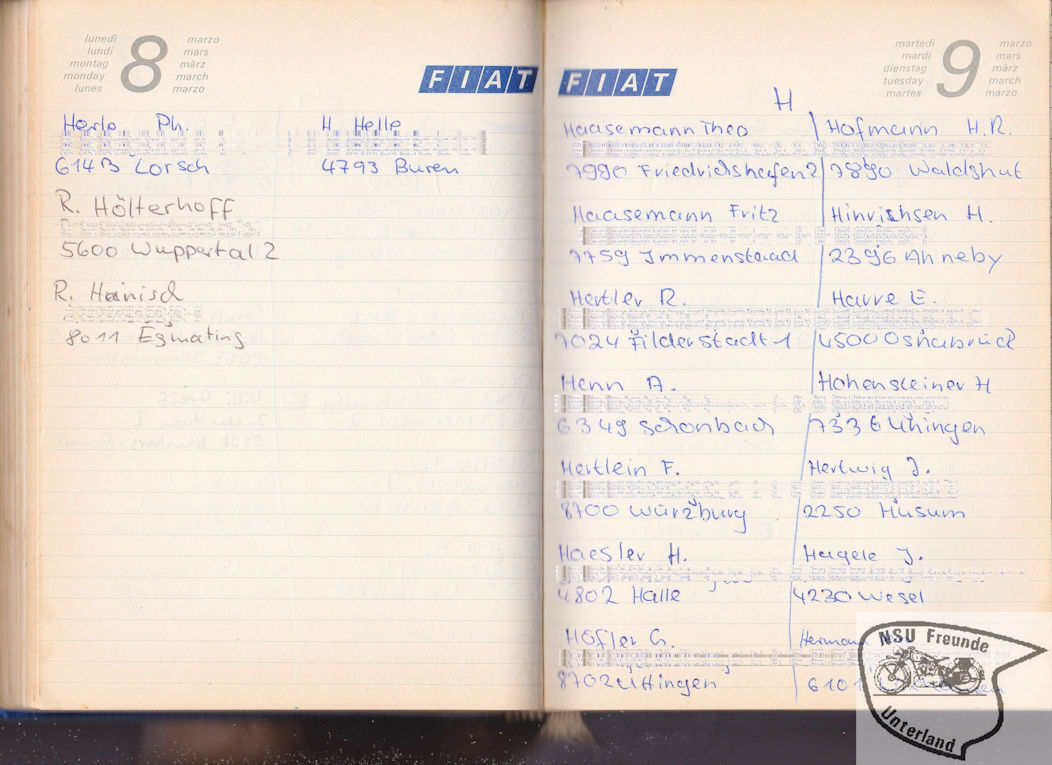 lunedì
lundi
montag
monday
lunes
8
marzo
mars
märz
march
marzo
FIAT
Ph.
H Helle
614 Lorsch
4793 Buren
R. Hölterhoff
5600 Wuppertal 2
R. Hanisch
8011 Egmating
FIAT
martedì
mardi
dienstag
tuesday
martes
9
marzo
mars
märz
march
marzo
H
Haasemann Theo
7990 Friedrichshafen 2
Haasemann Fritz
7759 Immenstaad
Hertler R.
7024 Filderstadt 1
Henn A.
6349 Schönbach
Hertlein F.
8700 Würzburg
Haesler H.
4802 Halle
Höfler G.
8702 Uttingen
Hofmann H.R.
7890 Waldshut
Hinrichsen H.
2396 Ahneby
Harre E.
4500 Osnabrück
Hohensteiner H
7336 Uhingen
Hertwig J.
2250 Husum
Hagele J.
4230 Wesel
6101
NSU Freunde
Unterland